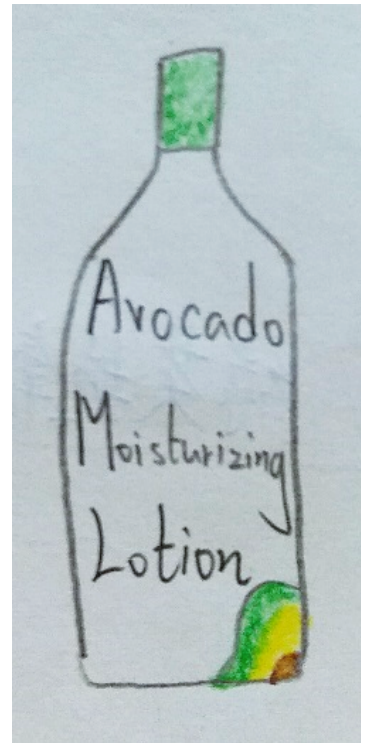 Avocado
Moisturizing
Lotion